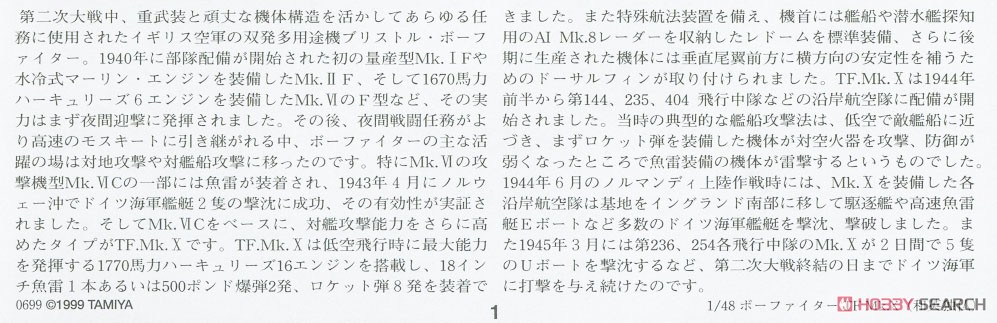 第二次大戦中、重武装と頑丈な機体構造を活かしてあらゆる任
務に使用されたイギリス空軍の双発多用途機ブリストル・ボーフ
ァイター。1940年に部隊配備が開始された初の量産型Mk.ⅠFや
水冷式マーリン・エンジンを装備したMk.ⅡF、そして1670馬力
ハーキュリーズ6エンジンを装備したMk.ⅥのF型など、その実
力はまず夜間迎撃に発揮されました。その後、夜間戦闘任務がよ
り高速のモスキートに引き継がれる中、ボーファイターの主な活
躍の場は対地攻撃や対艦船攻撃に移ったのです。特にMk.Ⅵの攻
撃機型Mk.ⅥCの一部には魚雷が装着され、1943年4月にノルウ
ェー沖でドイツ海軍艦艇2隻の撃沈に成功、その有効性が実証さ
れました。そしてMk.ⅥCをベースに、対艦攻撃能力をさらに高
めたタイプがTF.Mk.Ⅹです。TF.Mk.Ⅹは低空飛行時に最大能力
を発揮する1770馬力ハーキュリーズ16エンジンを搭載し、18イン
チ魚雷1本あるいは500ポンド爆弾2発、ロケット弾8発を装着で
きました。また特殊航法装置を備え、機首には艦船や潜水艦探知
用のAI Mk.8レーダーを収納したレドームを標準装備、さらに後
期に生産された機体には垂直尾翼前方に横方向の安定性を補うた
めのドーサルフィンが取り付けられました。TF.Mk.Ⅹは1944年
前半から第144、235、404 飛行中隊などの沿岸航空隊に配備が開
始されました。当時の典型的な艦船攻撃法は、低空で敵艦船に近
づき、まずロケット弾を装備した機体が対空火器を攻撃、防御が
弱くなったところで魚雷装備の機体が雷撃するというものでした。
1944年6月のノルマンディ上陸作戦時には、Mk.Ⅹを装備した各
沿岸航空隊は基地をイングランド南部に移して駆逐艦や高速魚雷
艇Eボートなど多数のドイツ海軍艦艇を撃沈、撃破しました。ま
た1945年3月には第236、254各飛行中隊のMk.Ⅹが2日間で5隻
のUボートを撃沈するなど、第二次大戦終結の日までドイツ海軍
に打撃を与え続けたのです。
0699 ©1999 TAMIYA
1
1/48 ボーファイター
HOBBY SEARCH